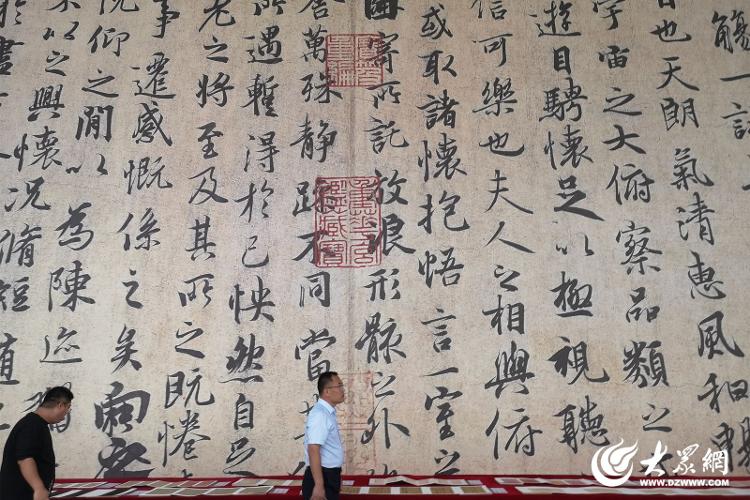 觴一
日也天朗氣清惠風和
宇宙之大俯察品類之
遊目騁懷足以極視聽
信可樂也夫人之相與俯
或取諸懷抱悟言一室之
因寄所託放浪形骸之外
萬殊靜躁不同當
所遇暫得於己怏然自足
老之將至及其所之既惓
事遷感慨係之矣向
仰之閒以為陳迹猶
以之興懷況脩短隨
於盡
大眾網
WWW.DZWWW.COM